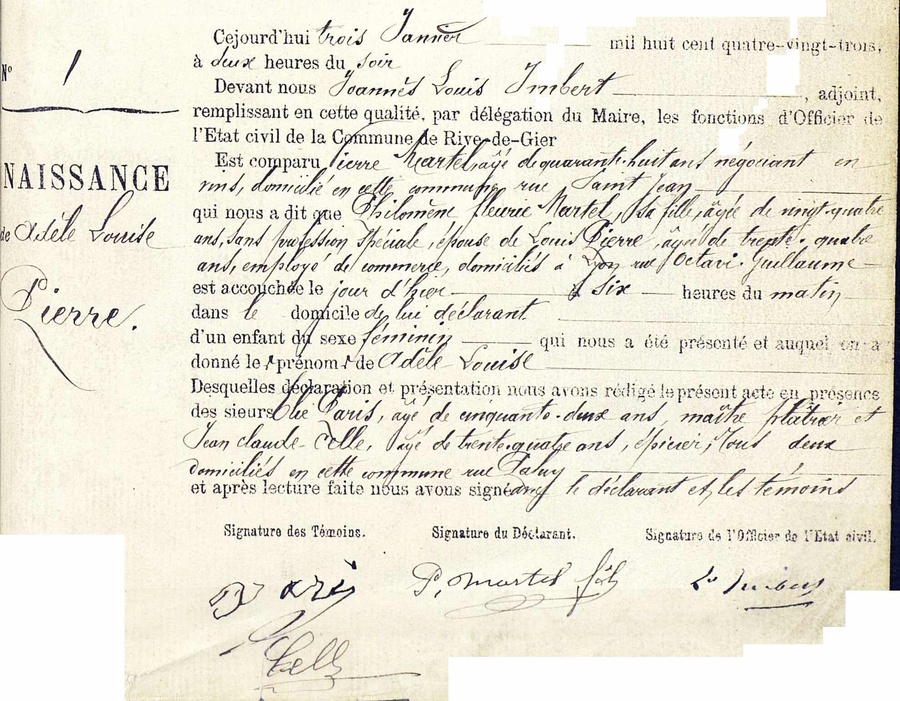 N° 1
NAISSANCE
de Adèle Louise
Pierre.
Cejourd'hui trois Janvier mil huit cent quatre-vingt-trois,
à deux heures du soir
Devant nous Joannès Louis Imbert, adjoint,
remplissant en cette qualité, par délégation du Maire, les fonctions d'Officier de
l'Etat civil de la Commune de Rive-de-Gier
Est comparu Pierre Martel, âgé de quarante-huit ans négociant en
vins, domicilié en cette commune rue Saint Jean
qui nous a dit que Philomène fleurie Martel, sa fille, âgée de vingt-quatre
ans, sans profession spéciale, épouse de Louis Pierre, âgé de trente-quatre
ans, employé de commerce, domiciliés à Lyon rue Octavi-Guillaume
est accouchée le jour d'hier à six heures du matin
dans le domicile de lui déclarant
d'un enfant du sexe féminin qui nous a été présenté et auquel on a
donné les prénoms de Adèle Louise
Desquelles déclaration et présentation nous avons rédigé le présent acte en présence
des sieurs Elie Paris, âgé de cinquante-deux ans, maître plâtrier et
Jean claude Celle, âgé de trente-quatre ans, épicier, Tous deux
domiciliés en cette commune rue Paluy
et après lecture faite nous avons signé avec le déclarant et les témoins
Signature des Témoins. Signature du Déclarant. Signature de l'Officier de l'Etat civil.
Paris P. Martel L. Imbert
Celle